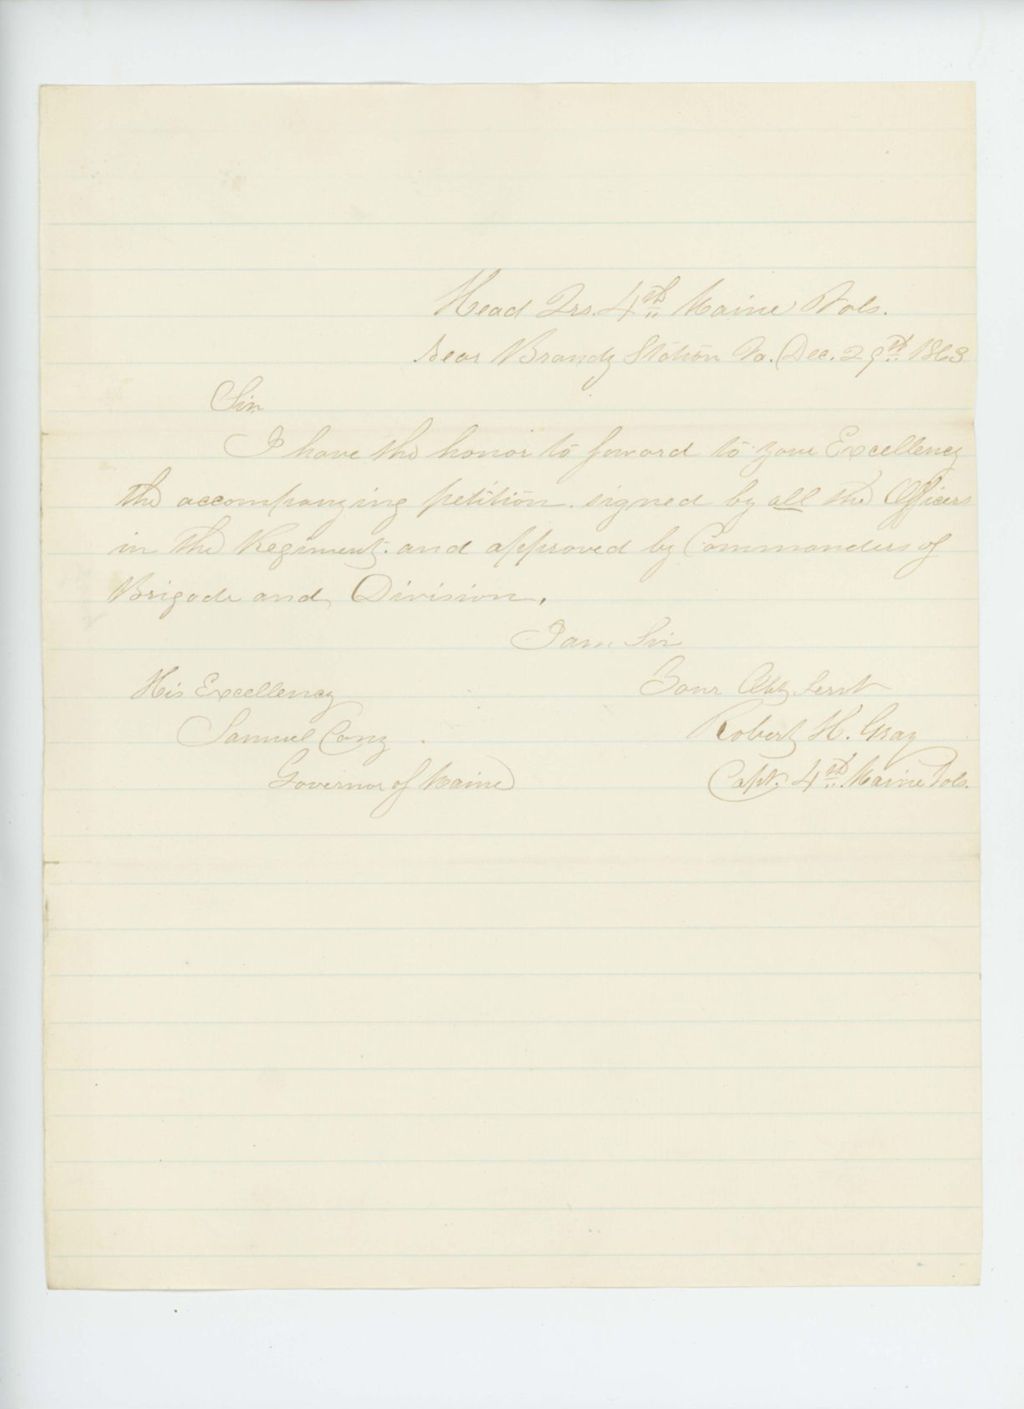 Head Qrs. 4th Maine Vols.
Near Brandy Station Va. Dec. 29th 1863
Sir
I have the honor to forward to your Excellency
the accompanying petition signed by all the Officers
in the Regiment. and approved by Commanders of
Brigade and Division.
I am Sir
His Excellency
Your Obt. Servt
Samuel Cony
Robert H. Gray
Governor of Maine
Capt. 4th Maine Vols.